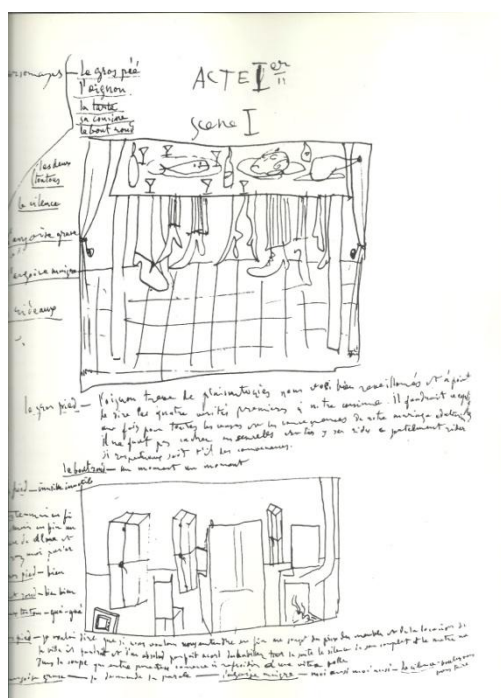 le gros pied
l'oignon
la tarte
sa cousine
le bout rond
les deux
toutous
le silence
angoisse grasse
angoisse maigre
rideaux
ACTE I er
scene I
le gros pied — l'oignon treve de plaisanteries nous voici bien reveillonnés et à point
de dire les quatre verités premieres à notre cousine. il faudrait
une fois pour toutes les causes ou les consequences de notre mariage adultere
il ne faut pas cacher
si respectueux soit t'il des convenances.
le bout rond — un moment un moment
pied — inutile inutile
mais en fin
de calme et
moi parler
pied — bien
rond — bien bien
toutous — gua gua
pied — je voulais dire que si nous voulons nous entendre en fin au sujet du prix des meubles et de la location de
la villa il faudrait et d'un absolu parfait accord deshabiller tout de suite le silence de son complet et le mettre nu
dans la soupe qui entre parentheses commence à refroidir d'une vitesse folle
angoisse grasse — je demande la parole — l'angoisse maigre — moi aussi moi aussi — le silence — voulez vous
vous taire